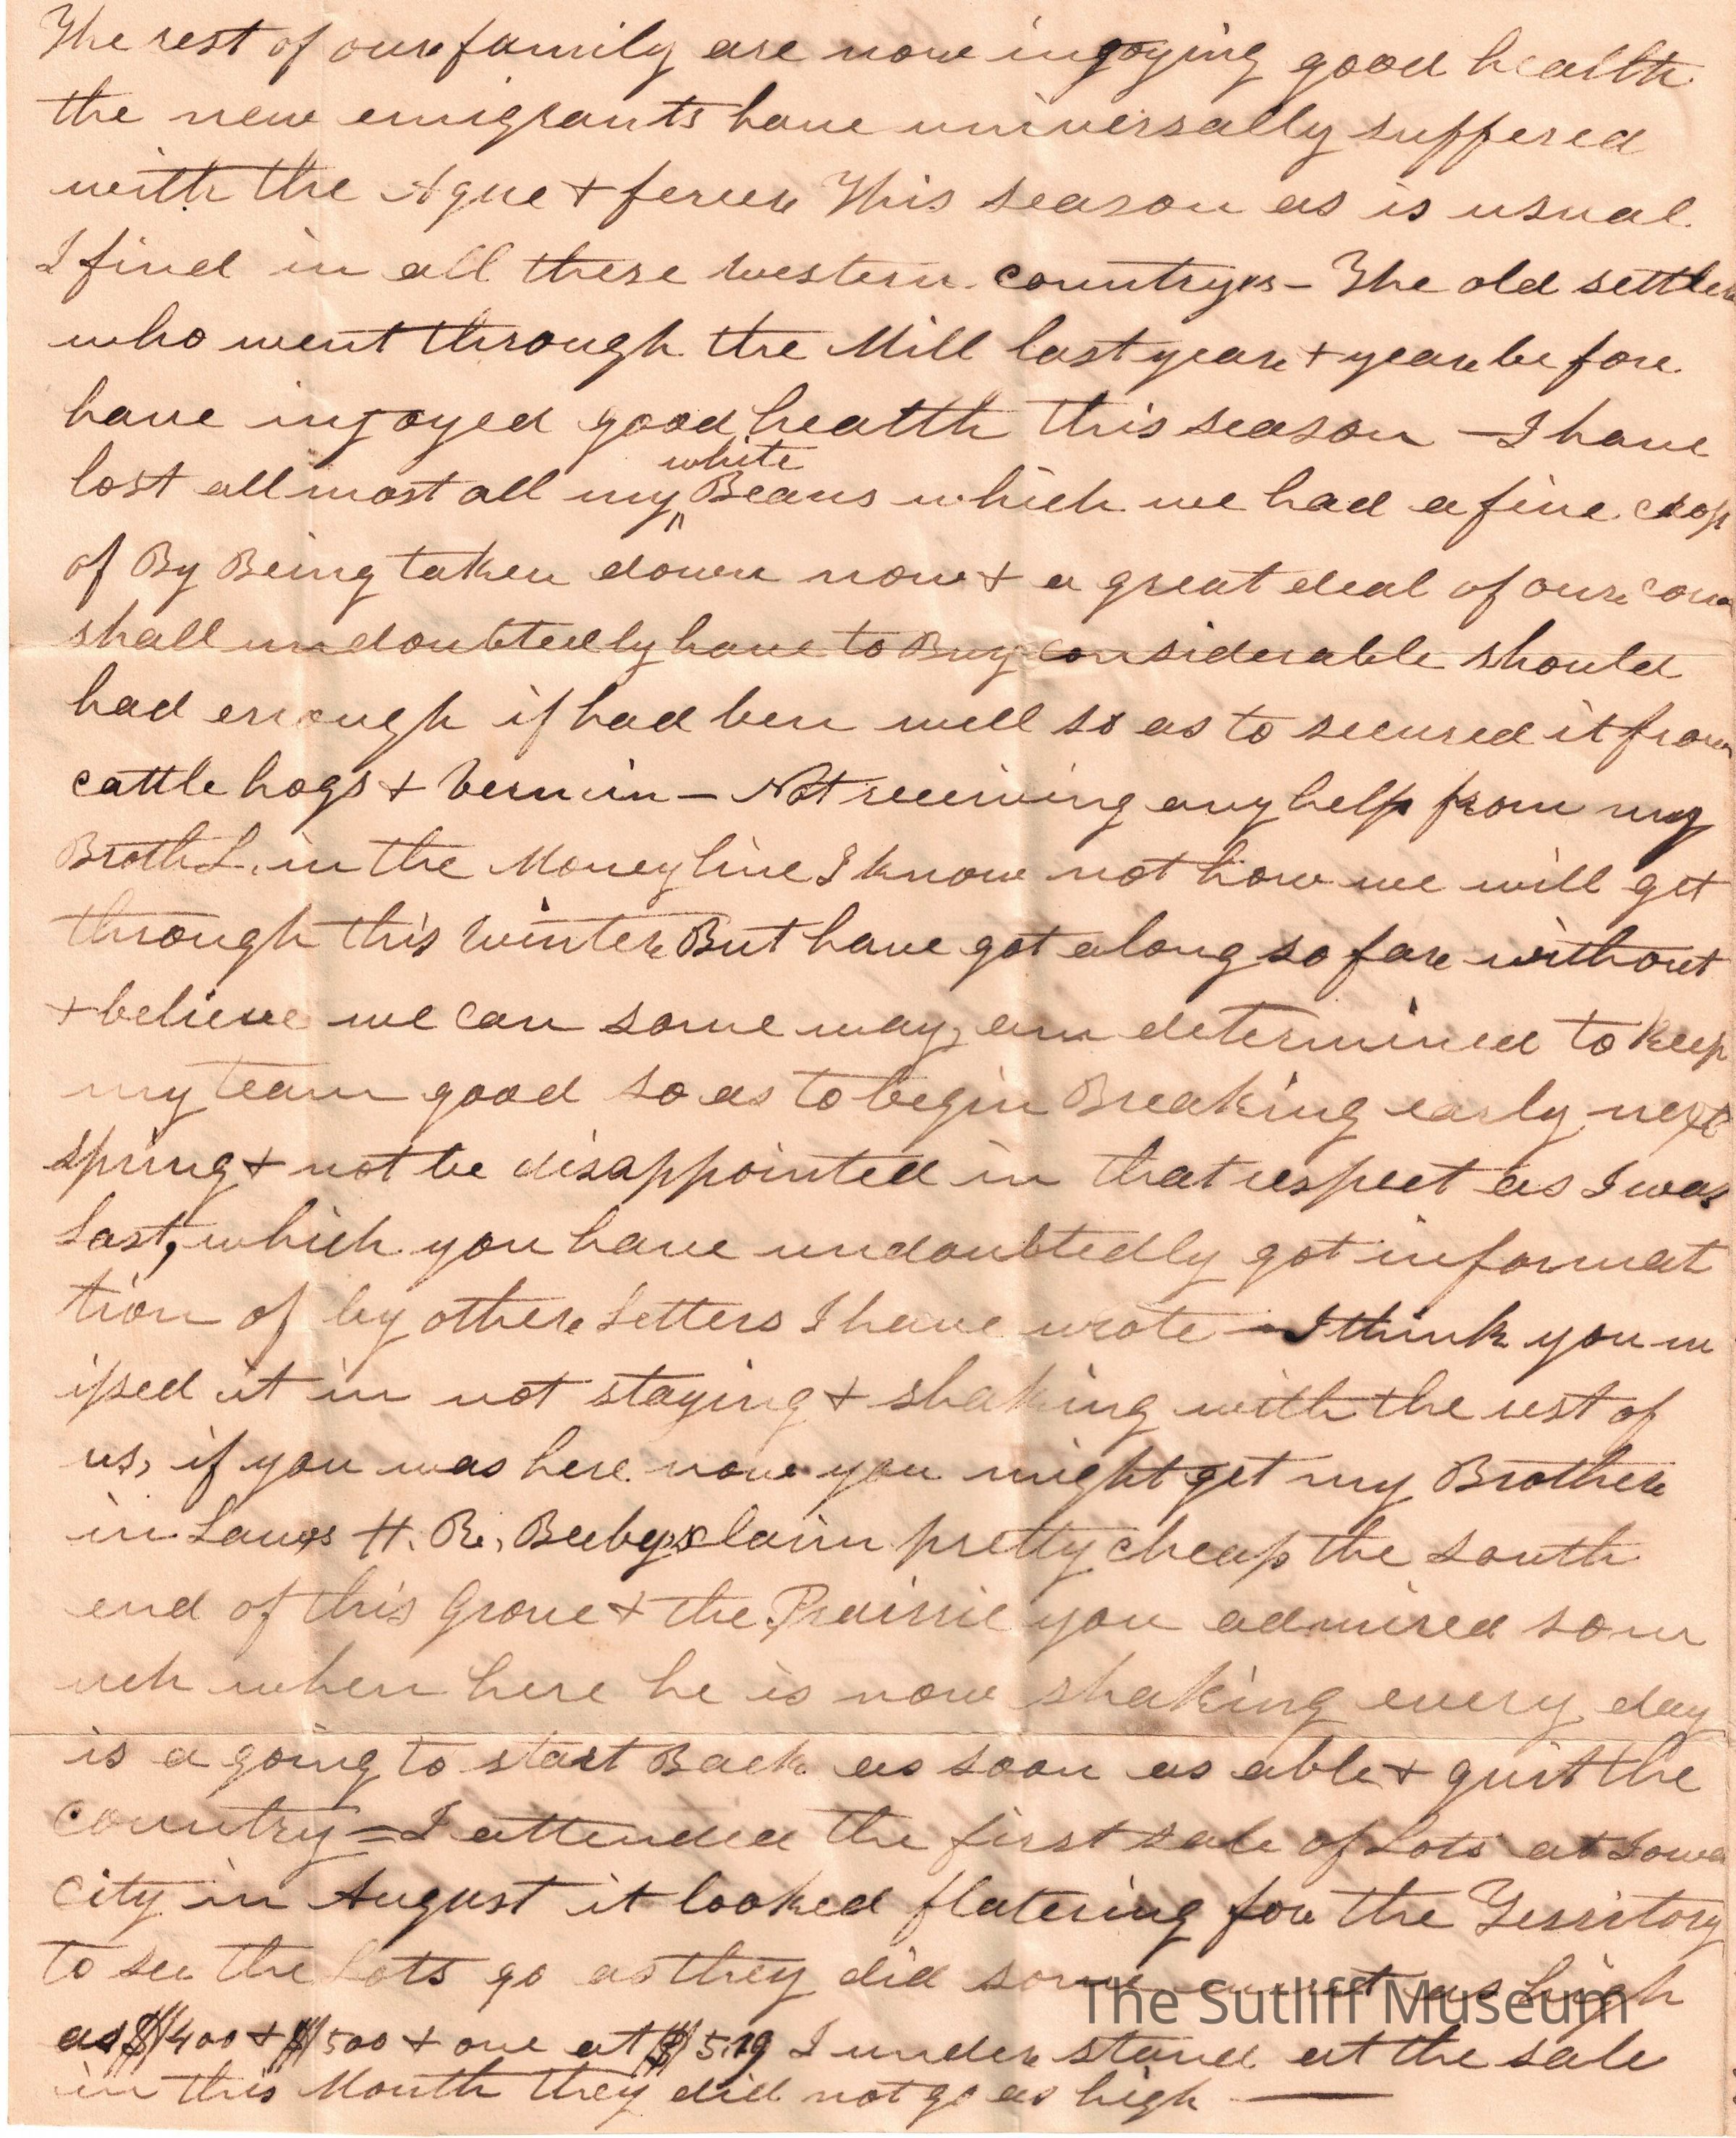 The rest of our family are now ingoying good health
the new emigrants have universally suffered
with the Ague + fever This season as is usual
I find in all these western countryes - The old settlers
who went through the Mill last year + year before
have injoyed good health this season - I have
white
lost allmost all my Beans which we had a fine crop
of By Being taken down now + a great deal of our corn
shall undoubtedly have to Buy considerable should
had enough if had ben well so as to secured it from
cattle hogs + vermin - Not receiving any help from my
Broth L. in the Money line I know not how we will get
through this winter But have got along so far without
+ believe we can some way, am determined to keep
my team good so as to begin Breaking early next
spring + not be disappointed in that respect as I was
last, which you have undoubtedly got informat
tion of by other Letters I have wrote - I think you m
issed it in not staying + shaking with the rest of
us, if you was here now you might get my Brother
in Laws H. R. Beebys claim pretty cheap the south
end of this Grove + the Prairie you admired so m
uch when here he is now shaking every day
is a going to start Back as soon as able + quit the
country = I attended the first sale of Lots at Iowa
City in August it looked flatering for the Territory
to see the Lots go as they did some went as high
as $400 + $500 + one at $519 I understand at the sale
in this Month they did not go as high
The Sutliff Museum